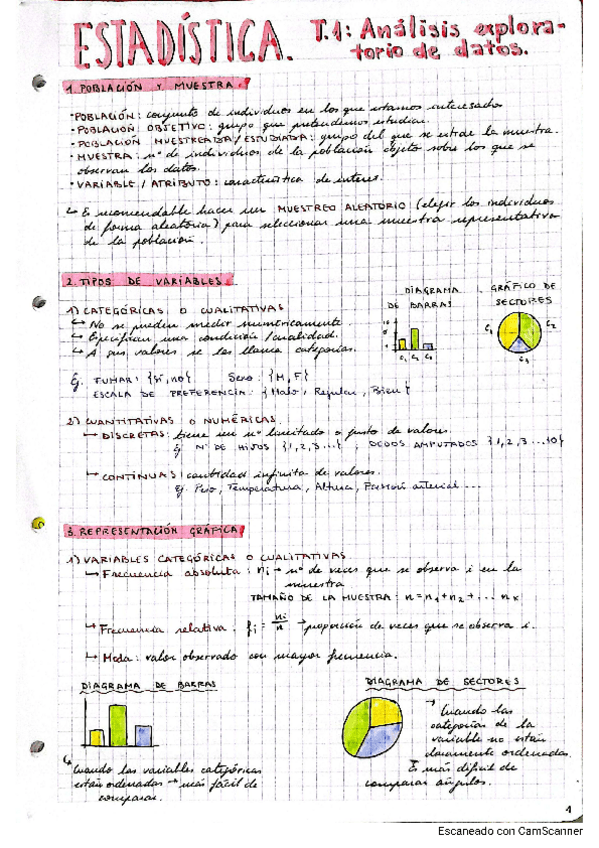 ESTADÍSTICA.
T.1: Análisis explora-
torio de datos.
1. POBLACIÓN Y MUESTRA.
· POBLACIÓN: conjunto de individuos en los que estamos interesados
· POBLACIÓN OBJETIVO: grupo que pretendemos estudiar.
· POBLACIÓN MUESTREADA / ESTUDIADA: grupo del que se extrae la muestra.
· MUESTRA: nº de individuos de la población objeto sobre los que se
observan los datos.
· VARIABLE / ATRIBUTO: característica de interés.
↳ Es recomendable hacer un MUESTREO ALEATORIO (elegir los individuos
de forma aleatoria) para seleccionar una muestra representativa
de la población.
2. TIPOS DE VARIABLES.
1) CATEGÓRICAS O CUALITATIVAS
↳ No se pueden medir numéricamente.
↳ Especifican una condición/cualidad.
↳ A sus valores se les llama categorías.
Ej. FUMAR: {Sí, no} Sexo: {M, F}
ESCALA DE PREFERENCIA: {Malo, Regular, Bien}
DIAGRAMA
DE BARRAS
C₁ C₂ C₃
GRÁFICO DE
SECTORES
C₁ C₂
C₃
2) CUANTITATIVAS O NUMÉRICAS
↳ DISCRETAS: tiene un nº limitado o justo de valores.
Ej Nº DE HIJOS {1,2,3...}; DEDOS AMPUTADOS {1,2,3...10}
↳ CONTINUAS: cantidad infinita de valores.
Ej. Peso, Temperatura, Altura, Presión arterial...
3. REPRESENTACIÓN GRÁFICA
1) VARIABLES CATEGÓRICAS O CUALITATIVAS
↳ Frecuencia absoluta: ni → nº de veces que se observa i en la
muestra
TAMAÑO DE LA MUESTRA: n = n₁ + n₂ + ... nₖ
↳ Frecuencia relativa: fi = ni/n → proporción de veces que se observa i.
↳ Moda: valor observado con mayor frecuencia.
DIAGRAMA DE BARRAS
↳ Cuando las variables categóricas
están ordenadas → más fácil de
comparar.
DIAGRAMA DE SECTORES
→ Cuando las
categorías de la
variable no están
claramente ordenadas.
Es más difícil de
comparar ángulos.
1
Escaneado con CamScanner